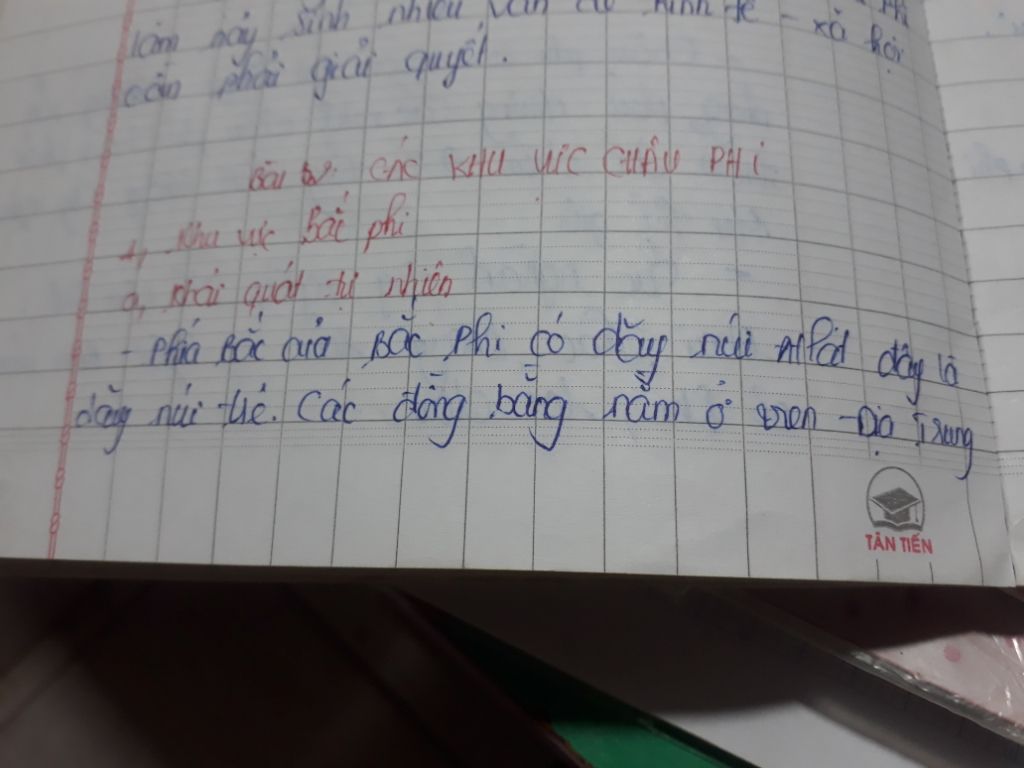 làm nảy sinh nhiều vấn đề kinh tế - xã hội
cần phải giải quyết.
Bài CÁC KHU VỰC CHÂU PHI
1, Khu vực Bắc phi
a, Khái quát tự nhiên
- Phía Bắc của Bắc Phi có dãy núi đây là
dãy núi trẻ. Các đồng bằng nằm ở ven Địa Trung
TÂN TIẾN